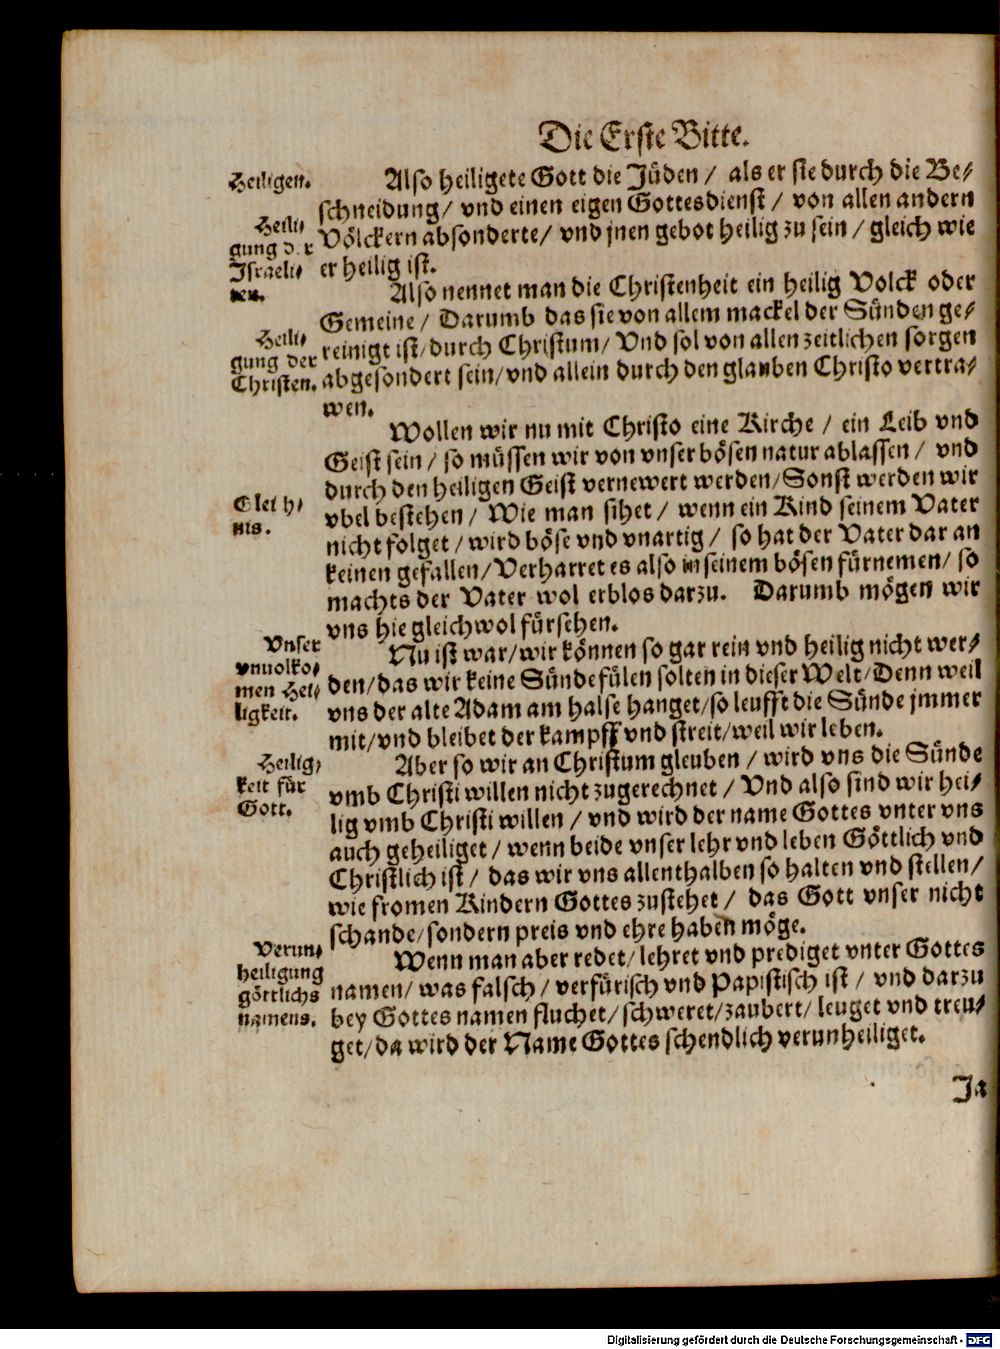 Die Erste Bitte.
Heiligen.
Also heiligete Gott die Jüden / als er sie durch die Be-
schneidung / vnd einen eigen Gottesdienst / von allen andern
Völckern absonderte / vnd jnen gebot heilig zu sein / gleich wie
er heilig ist.
Heili-
gung der
Israeli-
ten.
Also nennet man die Christenheit ein heilig Volck oder
Gemeine / Darumb das sie von allem mackel der Sünden ge-
reinigt ist / durch Christum / Vnd sol von allen zeitlichen sorgen
abgesondert sein / vnd allein durch den glauben Christo vertra-
wen.
Heili-
gung der
Christen.
Wollen wir nu mit Christo eine Kirche / ein Leib vnd
Geist sein / so müssen wir von vnser bösen natur ablassen / vnd
durch den heiligen Geist vernewert werden / Sonst werden wir
vbel bestehen / Wie man sihet / wenn ein Kind seinem Vater
nicht folget / wird böse vnd vnartig / so hat der Vater dar an
keinen gefallen / Verharret es also in seinem bösen fürnemen / so
machts der Vater wol erblos darzu. Darumb mögen wir
vns hie gleichwol fürsehen.
Gleich-
nis.
Nu ist war / wir können so gar rein vnd heilig nicht wer-
den / das wir keine Sünde fülen solten in dieser Welt / Denn weil
vns der alte Adam am halse hanget / so leufft die Sünde jmmer
mit / vnd bleibet der kampff vnd streit / weil wir leben.
Vnser
vnuolko-
men Hei-
ligkeit.
Aber so wir an Christum gleuben / wird vns die Sünde
vmb Christi willen nicht zugerechnet / Vnd also sind wir hei-
lig vmb Christi willen / vnd wird der name Gottes vnter vns
auch geheiliget / wenn beide vnser lehr vnd leben Göttlich vnd
Christlich ist / das wir vns allenthalben so halten vnd stellen /
wie fromen Kindern Gottes zustehet / das Gott vnser nicht
schande / sondern preis vnd ehre haben möge.
Heilig-
keit für
Gott.
Wenn man aber redet / lehret vnd prediget vnter Gottes
namen / was falsch / verfürisch vnd Papistisch ist / vnd darzu
bey Gottes namen fluchet / schweret / zaubert / leuget vnd treu-
get / da wird der Name Gottes schendlich verunheiliget.
Verun-
heiligung
göttlichs
namens.
Ja
Digitalisierung gefördert durch die Deutsche Forschungsgemeinschaft - DFG